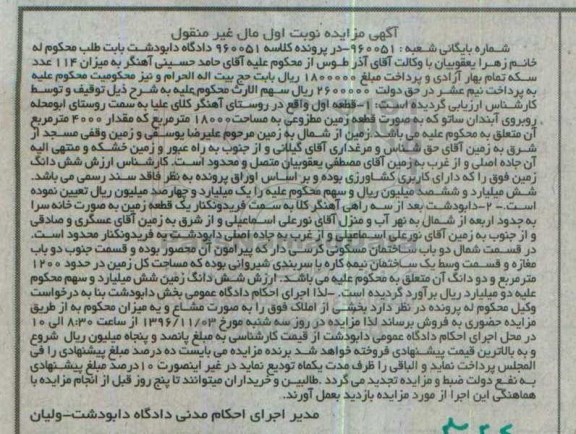 آگهی مزایده نوبت اول مال غیر منقول
شماره بایگانی شعبه : ۹۶۰۰۵۱-در پرونده کلاسه ۹۶۰۰۵۱ دادگاه دابودشت بابت طلب محکوم له
خانم زهرا یعقوبیان با وکالت آقای آذر طوس از محکوم علیه آقای حامد حسینی آهنگر به میزان ۱۱۴ عدد
سکه تمام بهار آزادی و پرداخت مبلغ ۱۸۰۰۰۰۰ ریال بابت حج بیت اله الحرام و نیز محکومیت محکوم علیه
به پرداخت نیم عشر در حق دولت ۲۶۰۰۰۰۰ ریال سهم الارث محکوم علیه به شرح ذیل توقیف و توسط
کارشناس ارزیابی گردیده است : ۱-قطعه اول واقع در روستای آهنگر کلای علیا به سمت روستای ابومحله
روبروی آببندان ساتو که به صورت قطعه زمین مطزوعی به مساحت ۱۸۰۰۰ مترمربع که مقدار ۴۰۰۰ مترمربع
آن متعلق به محکوم علیه می باشد. زمین از شمال به زمین مرحوم علیرضا یوسفی و زمین وقفی مسجد از
شرق به زمین آقای حق شناس و مرغداری آقای گیلانی و از جنوب به راه عبور و زمین خشکه و منتهی الیه
آن جاده اصلی و از غرب به زمین آقای مصطفی یعقوبیان متصل و محدود است. کارشناس ارزش شش دانگ
زمین فوق را که دارای کاربری کشاورزی بوده و بر اساس اوراق پرونده به نظر فاقد سند رسمی می باشد.
شش میلیارد و ششصد میلیون ریال و سهم محکوم علیه را یک میلیارد و چهارصد میلیون ریال تعیین نموده
است.- ۲-دابودشت بعد از سه راهی آهنگر کلا به سمت فریدونکنار یک قطعه زمین به صورت خانه سرا
به حدود اربعه از شمال به نهر آب و منزل آقای نورعلی اسماعیلی و از شرق به زمین آقای عسگری و صادقی
و از جنوب به زمین آقای نورعلی اسماعیلی و از غرب به جاده اصلی دابودشت به فریدونکنار محدود است.
در قسمت شمال دو باب ساختمان مسکونی کرسی دار که پیرامون آن محصور بوده و قسمت جنوب دو باب
مغازه و قسمت وسط یک ساختمان نیمه کاره با سربندی شیروانی بوده که مساحت کل زمین در حدود ۱۲۰۰
مترمربع و دو دانگ آن متعلق به محکوم علیه می باشد. ارزش شش دانگ زمین شش میلیارد و سهم محکوم
علیه دو میلیارد ریال برآورد گردیده است. -لذا اجرای احکام دادگاه عمومی بخش دابودشت بنا به درخواست
وکیل محکوم له پرونده در نظر دارد بخشی از املاک فوق را به صورت مشاع و به میزان محکوم به از طریق
مزایده حضوری به فروش برساند لذا مزایده در روز سه شنبه مورخ ۱۳۹۶/۱۱/۰۳ از ساعت ۸:۳۰ الی ۱۰
در محل اجرای احکام دادگاه عمومی دابودشت از قیمت کارشناسی به مبلغ پانصد و پنجاه میلیون ریال شروع
و به بالاترین قیمت پیشنهادی فروخته خواهد شد برنده مزایده می بایست ده درصد مبلغ پیشنهادی را فی
المجلس پرداخت نماید و الباقی را ظرف مدت یکماه تودیع نماید در غیر اینصورت ۱۰ درصد مبلغ پیشنهادی
به نفع دولت ضبط و مزایده تجدید می گردد .طالبین و خریداران میتوانند تا پنج روز قبل از انجام مزایده با
هماهنگی این اجرا از مورد مزایده بازدید بعمل آورند.
مدیر اجرای احکام مدنی دادگاه دابودشت-ولیان